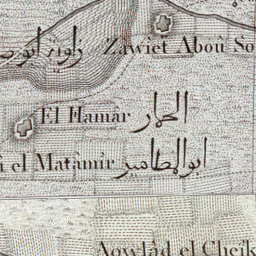 زاوية ابو ص Zawïet Aboû So
El Hamâr الحمار
i el Matâmir ابو المطامير
Aowlâd el Cheik